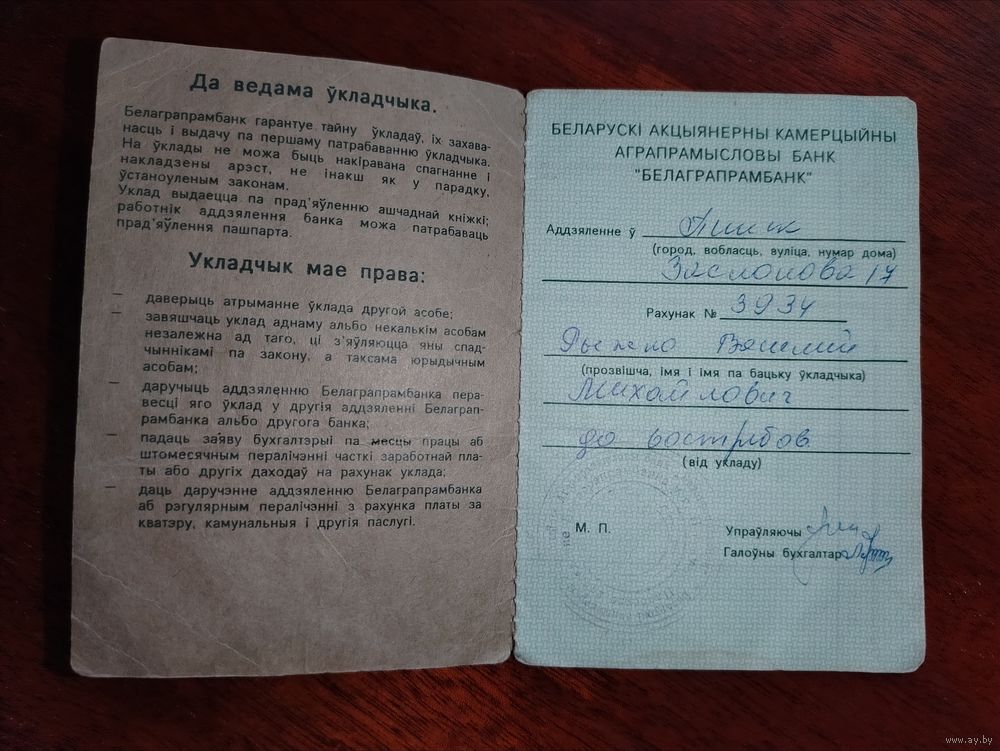 Да ведама ўкладчыка.
Белаграпрамбанк гарантуе тайну ўкладаў, іх захава-
насць і выдачу па першаму патрабаванню ўкладчыка.
На ўклады не можа быць накіравана спагнанне і
накладзены арэст, не інакш як у парадку,
ўстаноуленым законам.
Уклад выдаецца па прад'яўленню ашчаднай кніжкі;
работнік аддзялення банка можа патрабаваць
прад'яўлення пашпарта.
Укладчык мае права:
— даверыць атрыманне ўклада другой асобе;
— завяшчаць уклад аднаму альбо некалькім асобам
незалежна ад таго, ці з'яўляюцца яны спад-
чыннікамі па закону, а таксама юрыдычным
асобам;
— даручыць аддзяленню Белаграпрамбанка пера-
весці яго ўклад у другія аддзяленні Белаграп-
рамбанка альбо другога банка;
— падаць заяву бухгалтэрыі па месцы працы аб
штомесячным пералічэнні часткі заработнай пла-
ты або другіх даходаў на рахунак уклада;
— даць даручэнне аддзяленню Белаграпрамбанка
аб рэгулярным пералічэнні з рахунка платы за
кватэру, камунальныя і другія паслугі.
БЕЛАРУСКІ АКЦЫЯНЕРНЫ КАМЕРЦЫЙНЫ
АГРАПРАМЫСЛОВЫ БАНК
"БЕЛАГРАПРАМБАНК"
Аддзяленне ў Пинск
(город, вобласць, вуліца, нумар дома)
Заслонова 17
Рахунак № 3934
(прозвішча, імя і імя па бацьку ўкладчыка)
Михайлович
до востребов.
(від укладу)
М. П.
Упраўляючы
Галоўны бухгалтар
www.ay.by